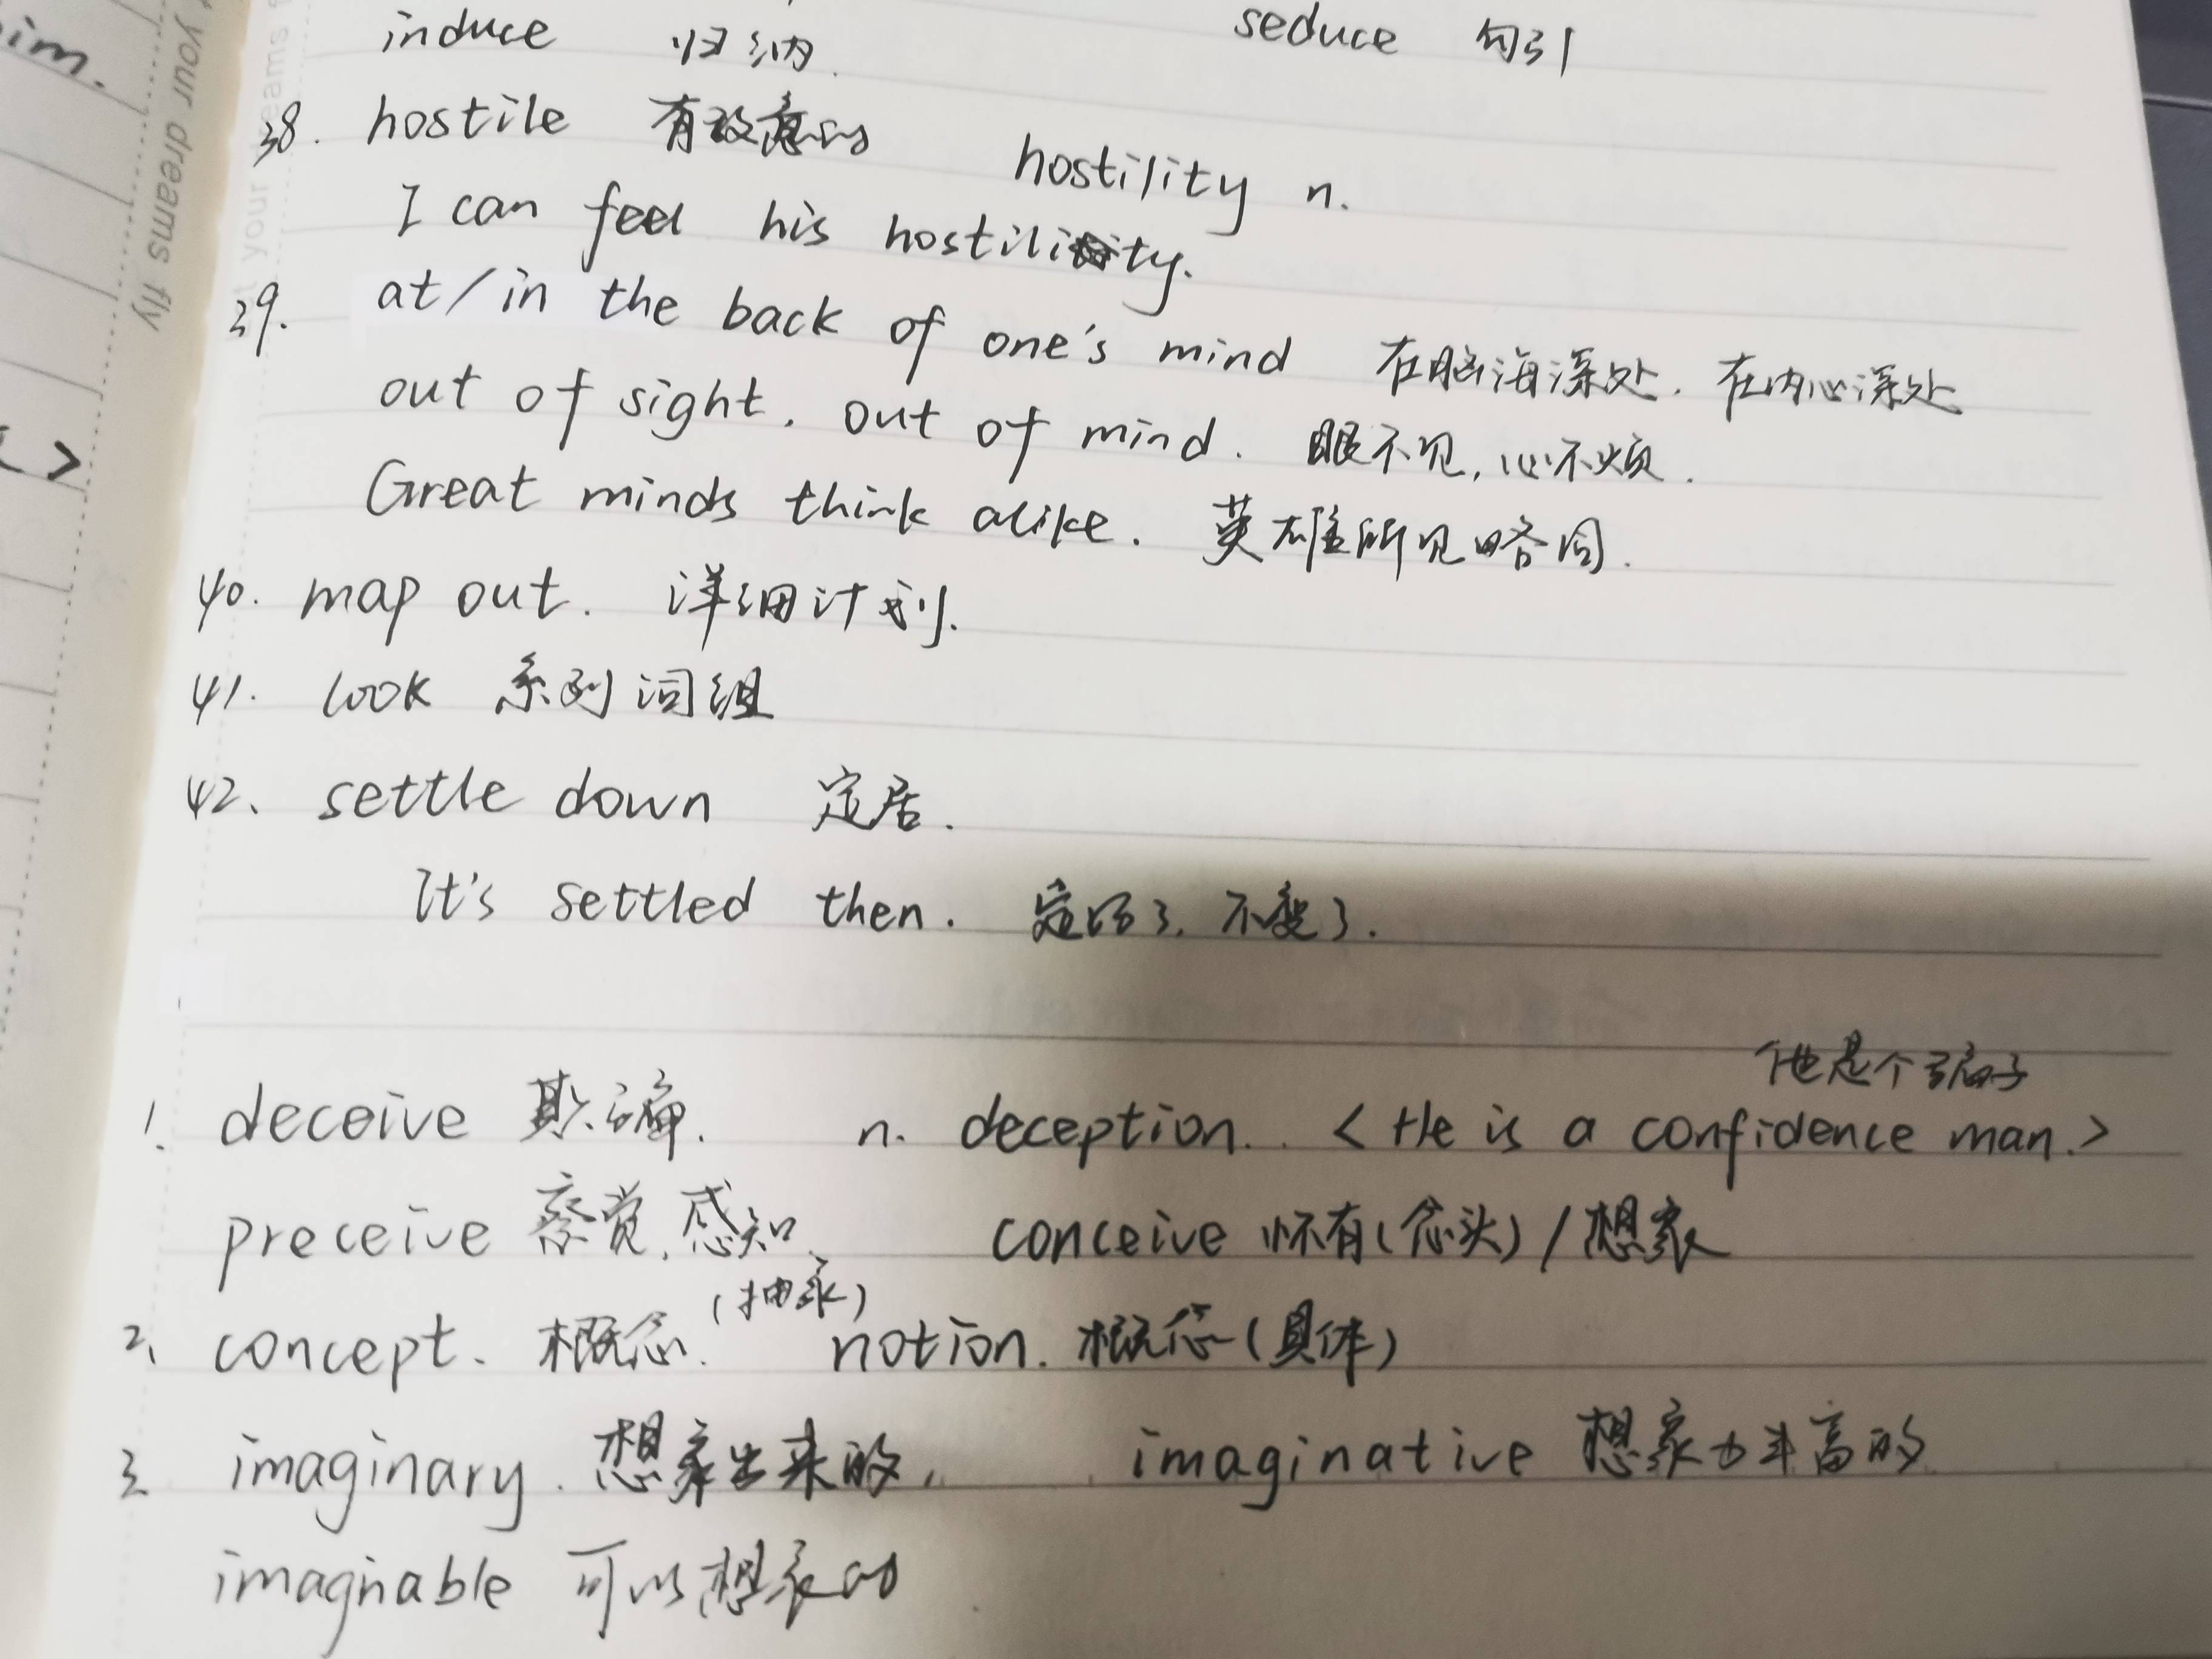 im.
your dreams fly
your dreams f
induce 归纳. seduce 勾引
38. hostile 有敌意的 hostility n.
I can feel his hostility.
39. at/in the back of one's mind 在脑海深处. 在内心深处
out of sight. out of mind. 眼不见,心不烦.
Great minds think alike. 英雄所见略同.
40. map out. 详细计划.
41. look 系列词组
42、settle down 定居.
It's settled then. 定了. 不变了.
他是个骗子
1. deceive 欺骗. n. deception. <He is a confidence man.>
preceive 察觉,感知、 conceive 怀有(念头)/想象
(抽象)
2、concept、概念. notion. 概念(具体)
3、imaginary. 想象出来的, imaginative 想象力丰富的
imagnable 可以想象的